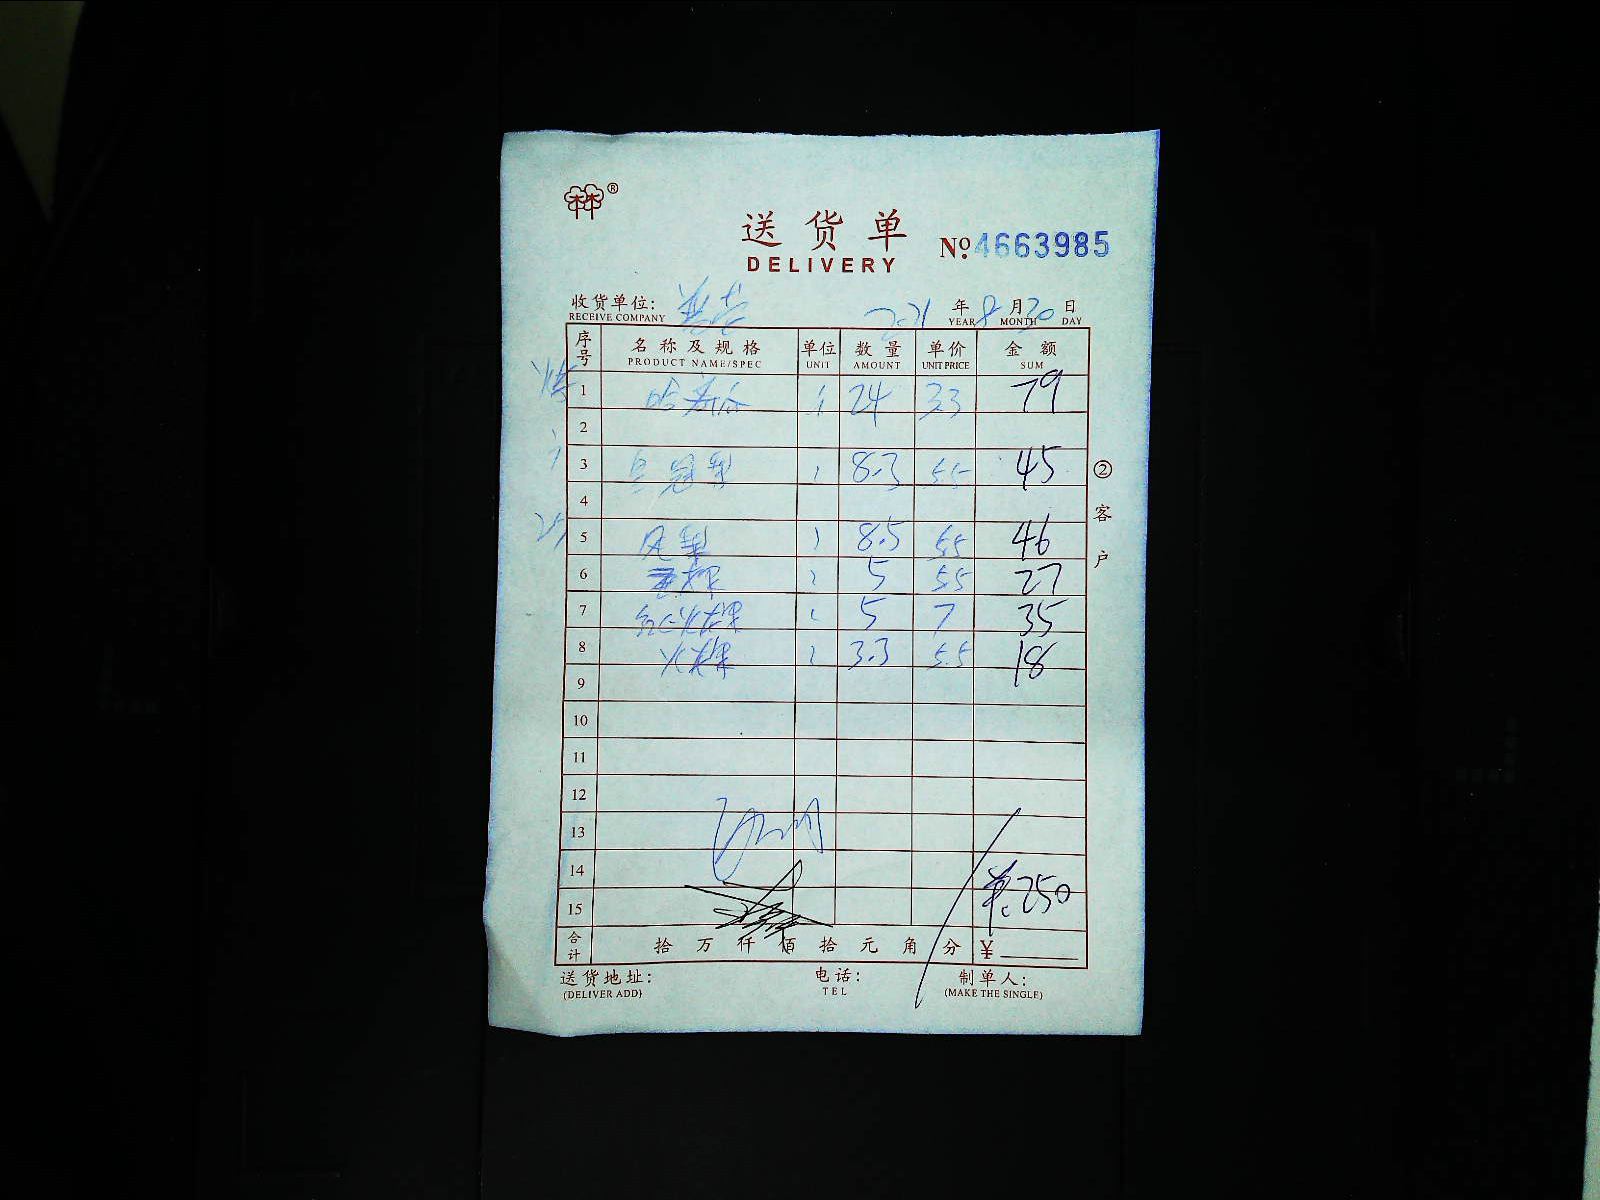 ®
送货单
DELIVERY
No. 4663985
收货单位:
RECEIVE COMPANY
2021 年 8 月 30 日
YEAR MONTH DAY
序号 名称及规格 单位 数量 单价 金额
PRODUCT NAME/SPEC UNIT AMOUNT UNIT PRICE SUM
1 哈密瓜 24 3.3 79
2
3 8.3 5.5 45
4
5 8.5 5.5 46
6 5 5.5 27
7 5 7 35
8 3.3 5.5 18
9
10
11
12
13
14 250
15
合计 拾 万 仟 佰 拾 元 角 分 ¥
② 客户
送货地址: 电话: 制单人:
(DELIVER ADD) TEL (MAKE THE SINGLE)